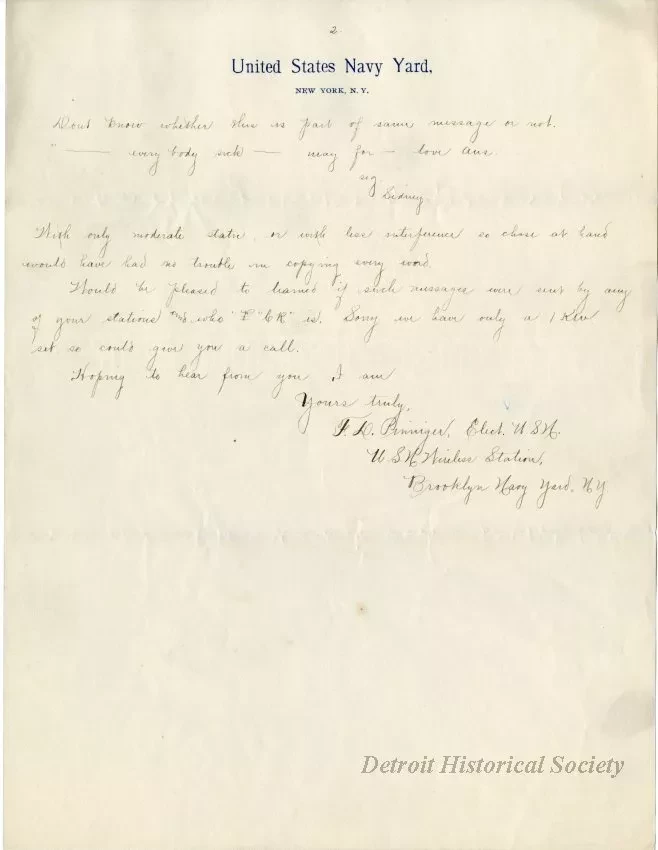 2
United States Navy Yard,
NEW YORK, N. Y.
Dont know whether this is part of same message or not.
" —— every body sick — may for — love ans.
sig
Sidney
With only moderate static or with less interference so close at hand
would have had no trouble in copying every word.
Would be pleased to learned if such messages were sent by any
of your stations and who " " "CK" is. Sorry we have only a 1 Kew
set so could give you a call.
Hoping to hear from you I am
Yours truly,
F. D. Pinniger, Elect. U.S.N.
U S N Wireless Station,
Brooklyn Navy Yard, NY
Detroit Historical Society